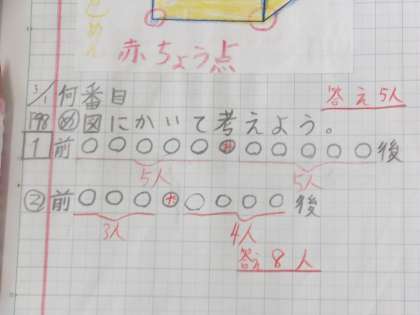 めん
赤ちょう点
3/1 何番目 答え 5人
198 め 図にかいて考えよう。
1 前○○○○○⊕○○○○○後
5人 5人
② 前○○○⊕○○○○後
3人 4人
答え 8人